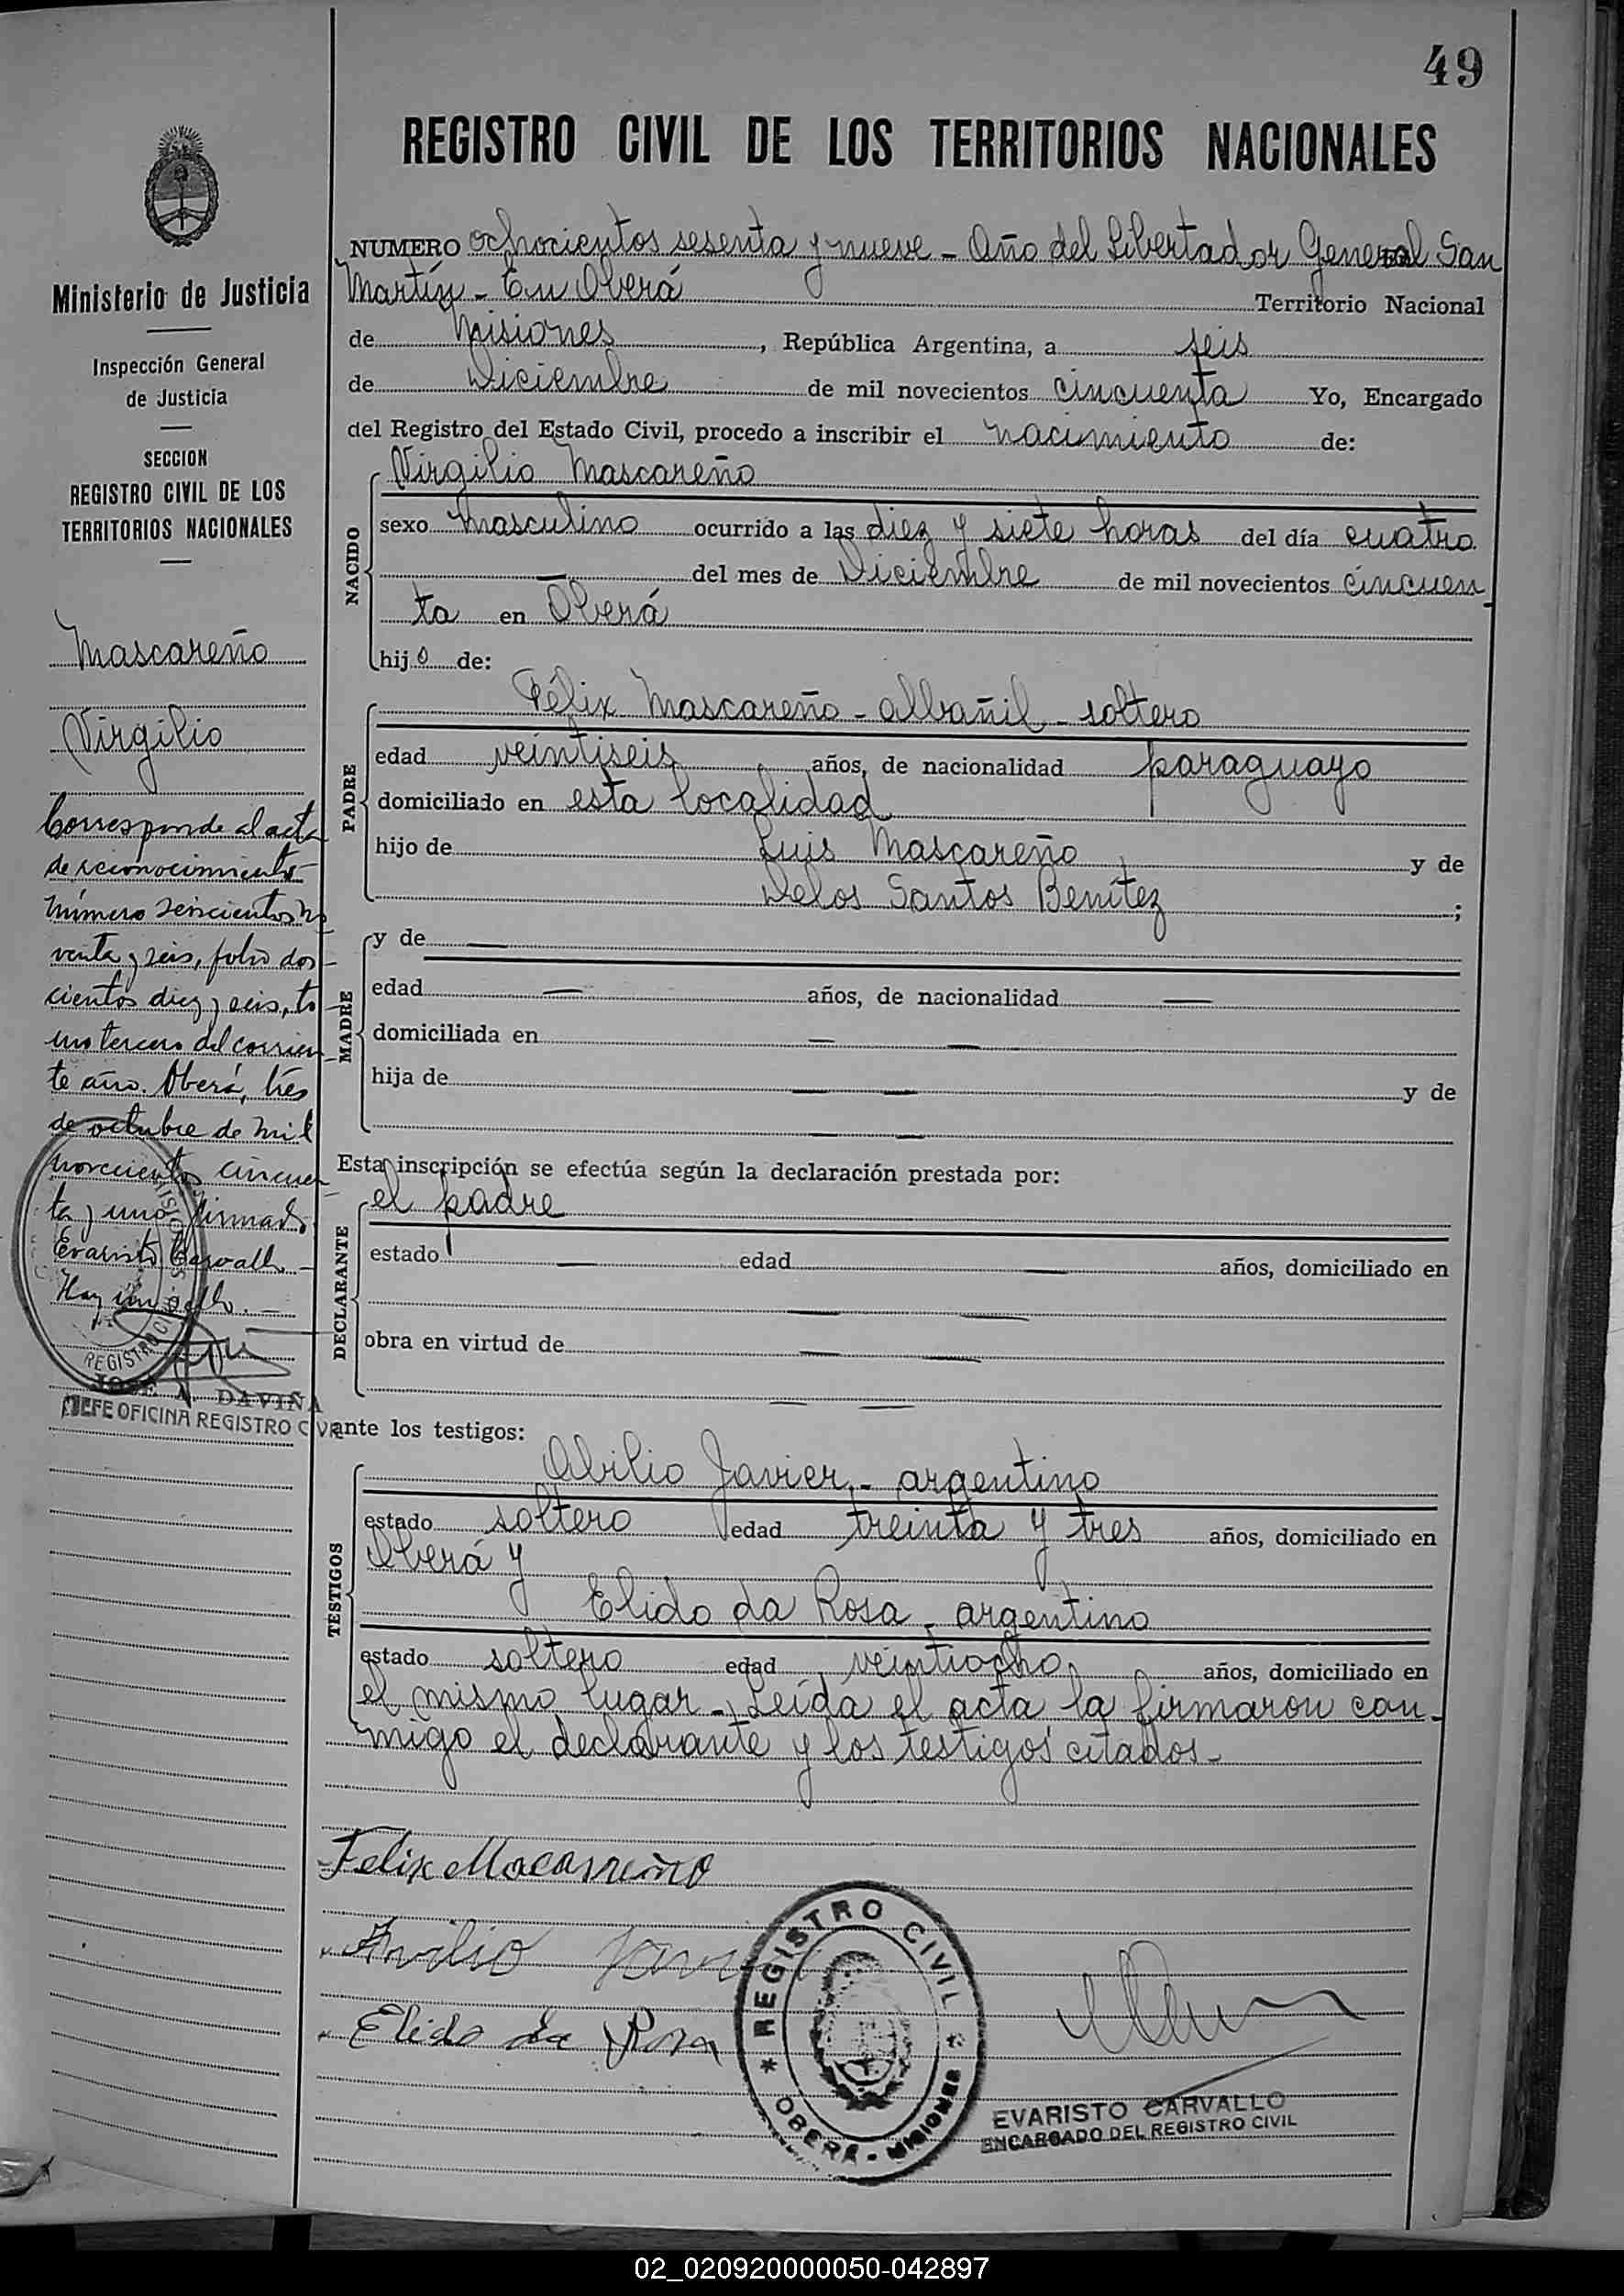 49
REGISTRO CIVIL DE LOS TERRITORIOS NACIONALES
Ministerio de Justicia
Inspección General
de Justicia
SECCION
REGISTRO CIVIL DE LOS
TERRITORIOS NACIONALES
Mascareño
Virgilio
Corresponde al acta
de reconocimiento
número seiscientos no
venta y seis, folio dos-
cientos diez y seis, to
mo tercero del corrien
te año. Oberá, tres
de octubre de mil
novecientos cincuen
ta y uno firmado
Evaristo Carvallo -
Hay un sello. -
REGISTRO CI
JOSE A. DAVIÑA
JEFE OFICINA REGISTRO CIVI
NUMERO ochocientos sesenta y nueve - Año del Libertador General San
Martín - En Oberá Territorio Nacional
de Misiones, República Argentina, a seis
de Diciembre de mil novecientos cincuenta Yo, Encargado
del Registro del Estado Civil, procedo a inscribir el nacimiento de:
NACIDO
Virgilio Mascareño
sexo masculino ocurrido a las diez y siete horas del día cuatro
— del mes de Diciembre de mil novecientos cincuen
ta en Oberá
hijo de:
PADRE
Félix Mascareño - albañil - soltero
edad veintiseis años, de nacionalidad paraguayo
domiciliado en esta localidad
hijo de Luis Mascareño y de
Delos Santos Benítez ;
MADRE
y de —
edad — años, de nacionalidad —
domiciliada en — —
hija de — — y de
— —
Esta inscripción se efectúa según la declaración prestada por:
DECLARANTE
el padre
estado — edad — años, domiciliado en
— —
obra en virtud de — —
— —
ante los testigos:
TESTIGOS
Abilio Javier, - argentino
estado soltero edad treinta y tres años, domiciliado en
Oberá y
Elido da Rosa - argentino
estado soltero edad veintiocho, años, domiciliado en
el mismo lugar - Leída el acta la firmaron con-
migo el declarante y los testigos citados -
Felix Mascareño
Javi
Elido da Rosa
* REGISTRO CIVIL *
OBERA - MISIONES
EVARISTO CARVALLO
ENCARGADO DEL REGISTRO CIVIL
02_020920000050-042897